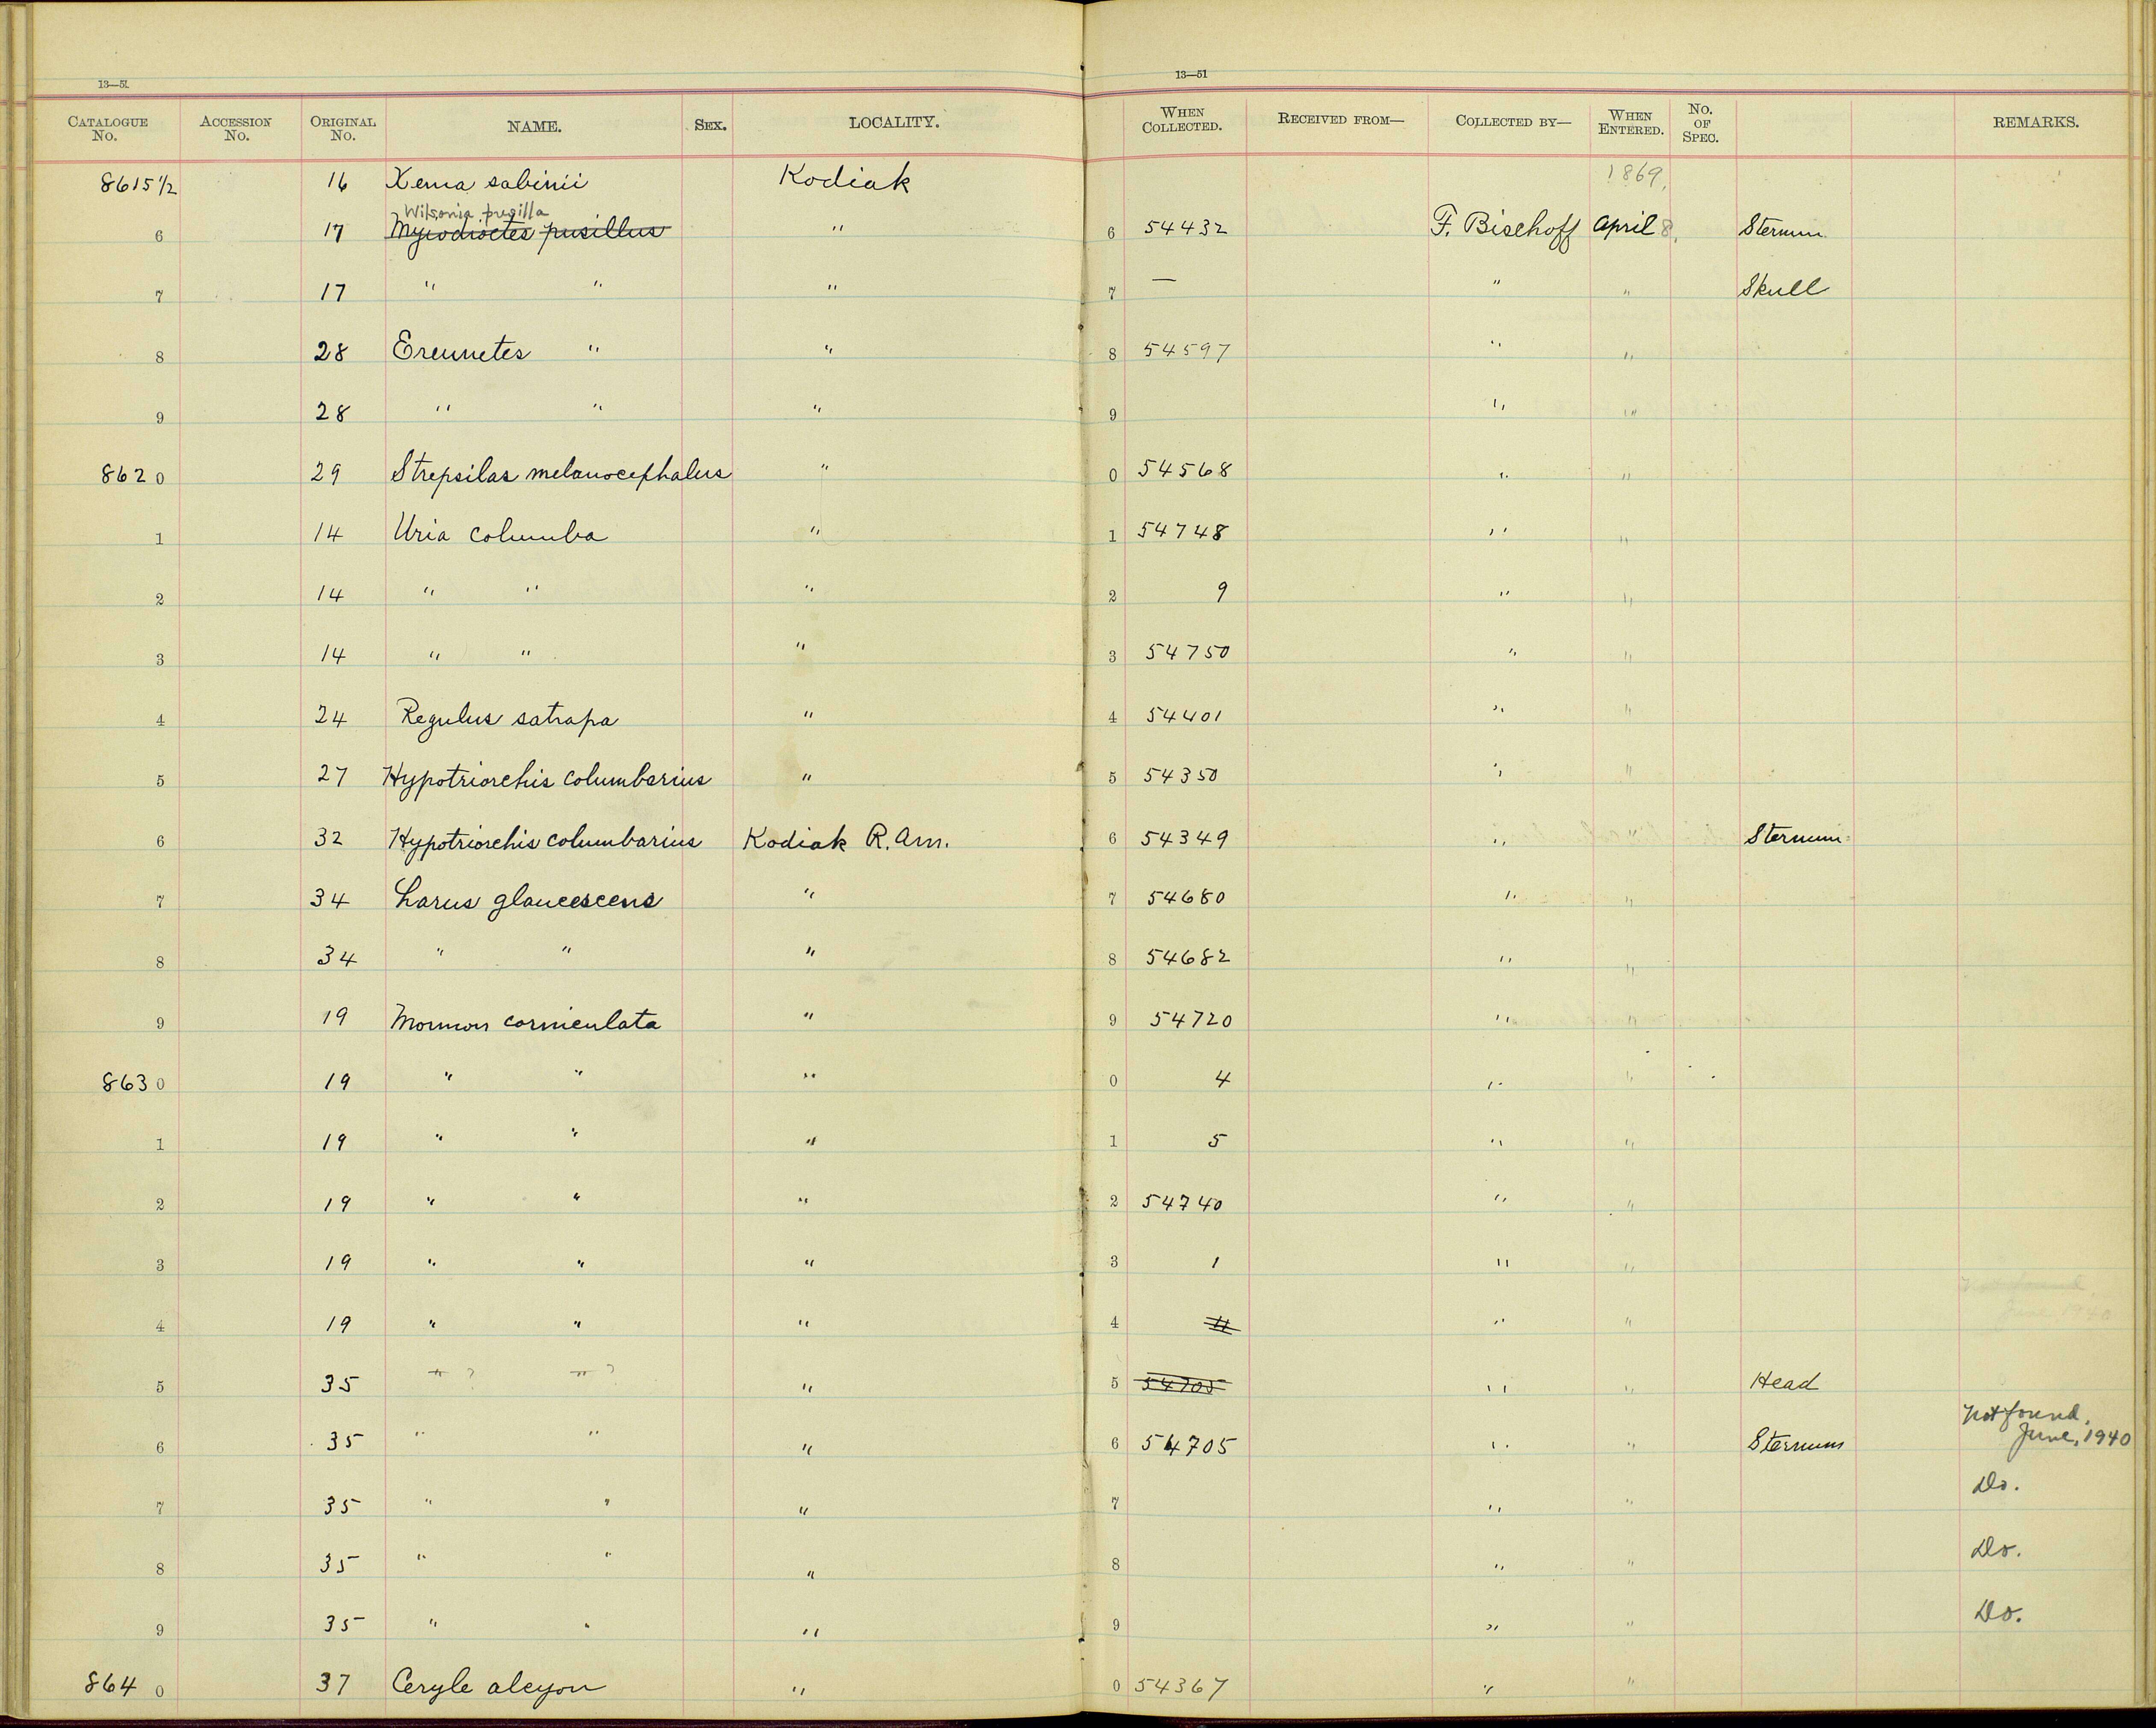 13—51
13—51
CATALOGUE No. ACCESSION No. ORIGINAL No. NAME. SEX. LOCALITY. WHEN COLLECTED. RECEIVED FROM— COLLECTED BY— WHEN ENTERED. No. OF SPEC. REMARKS.
8615 1/2 16 Xema sabinii Kodiak 1869,
Wilsonia pusilla
6 17 Myiodioctes pusillus " 6 54432 F. Bischoff April 8, Sternum
7 17 " " " 7 — " " Skull
8 28 Ereunetes " " 8 54597 " "
9 28 " " " 9 " "
8620 29 Strepsilas melanocephalus " 0 54568 " "
1 14 Uria columba " 1 54748 " "
2 14 " " " 2 9 " "
3 14 " " " 3 54750 " "
4 24 Regulus satrapa " 4 54401 " "
5 27 Hypotriorchis columbarius " 5 54350 " "
6 32 Hypotriorchis columbarius Kodiak R. Am. 6 54349 " " Sternum
7 34 Larus glaucescens " 7 54680 " "
8 34 " " " 8 54682 " "
9 19 Mormon corniculata " 9 54720 " "
8630 19 " " " 0 4 " "
1 19 " " " 1 5 " "
2 19 " " " 2 54740 " "
3 19 " " " 3 1 " "
Not found,
June 1940
4 19 " " " 4 " "
5 35 " ? " ? " 5 54705 " " Head
Not found,
6 35 " " " 6 54705 " " Sternum June, 1940
7 35 " " " 7 " " Do.
8 35 " " " 8 " " Do.
9 35 " " " 9 " " Do.
8640 37 Ceryle alcyon " 0 54367 " "